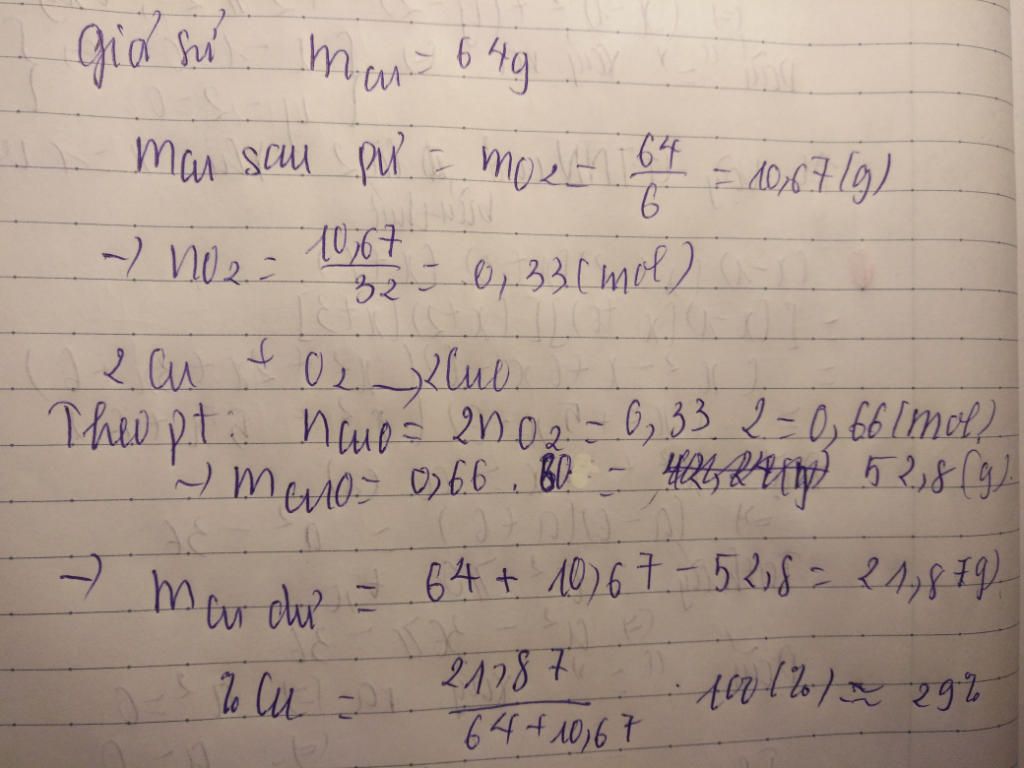 Giả sử m Cu = 64g
m Cu sau pứ = mO2 = 64/6 = 10,67(g)
→ nO2 = 10,67/32 = 0,33(mol)
2Cu + O2 → 2CuO
Theo pt: nCuO = 2nO2 = 0,33 . 2 = 0,66(mol)
→ mCuO = 0,66 . 80 = 52,8(g)
→ m Cu dư = 64 + 10,67 - 52,8 = 21,87g)
%Cu = 21,87/64+10,67 . 100(%) ≈ 29%